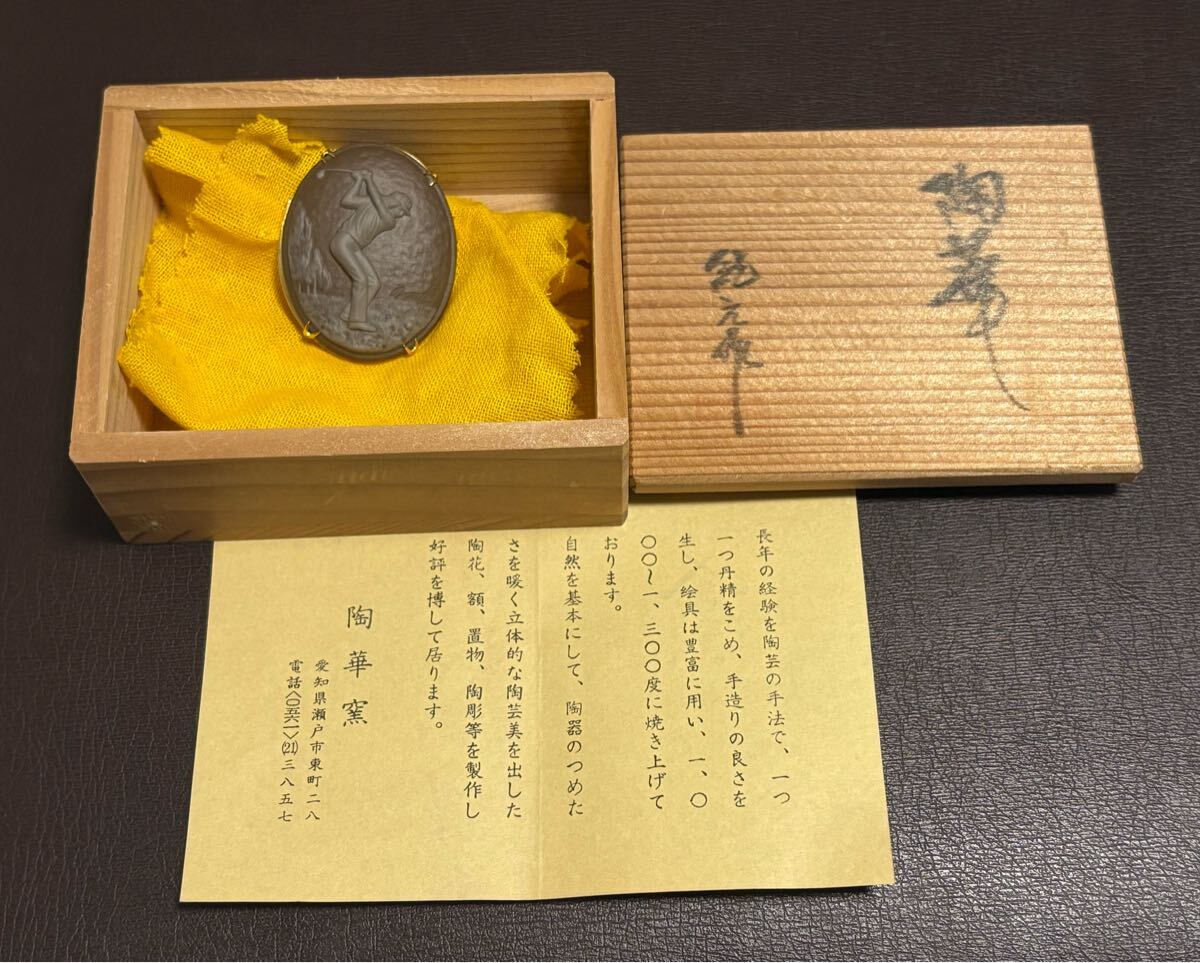 陶華
長年の経験を陶芸の手法で、一つ
一つ丹精をこめ、手造りの良さを
生し、絵具は豊富に用い、一、〇
〇〇〜一、三〇〇度に焼き上げて
おります。
自然を基本にして、陶器のつめた
さを暖く立体的な陶芸美を出した
陶花、額、置物、陶彫等を製作し
好評を博して居ります。
陶華窯
愛知県瀬戸市東町二八
電話〈〇五六一〉(21)三八五七